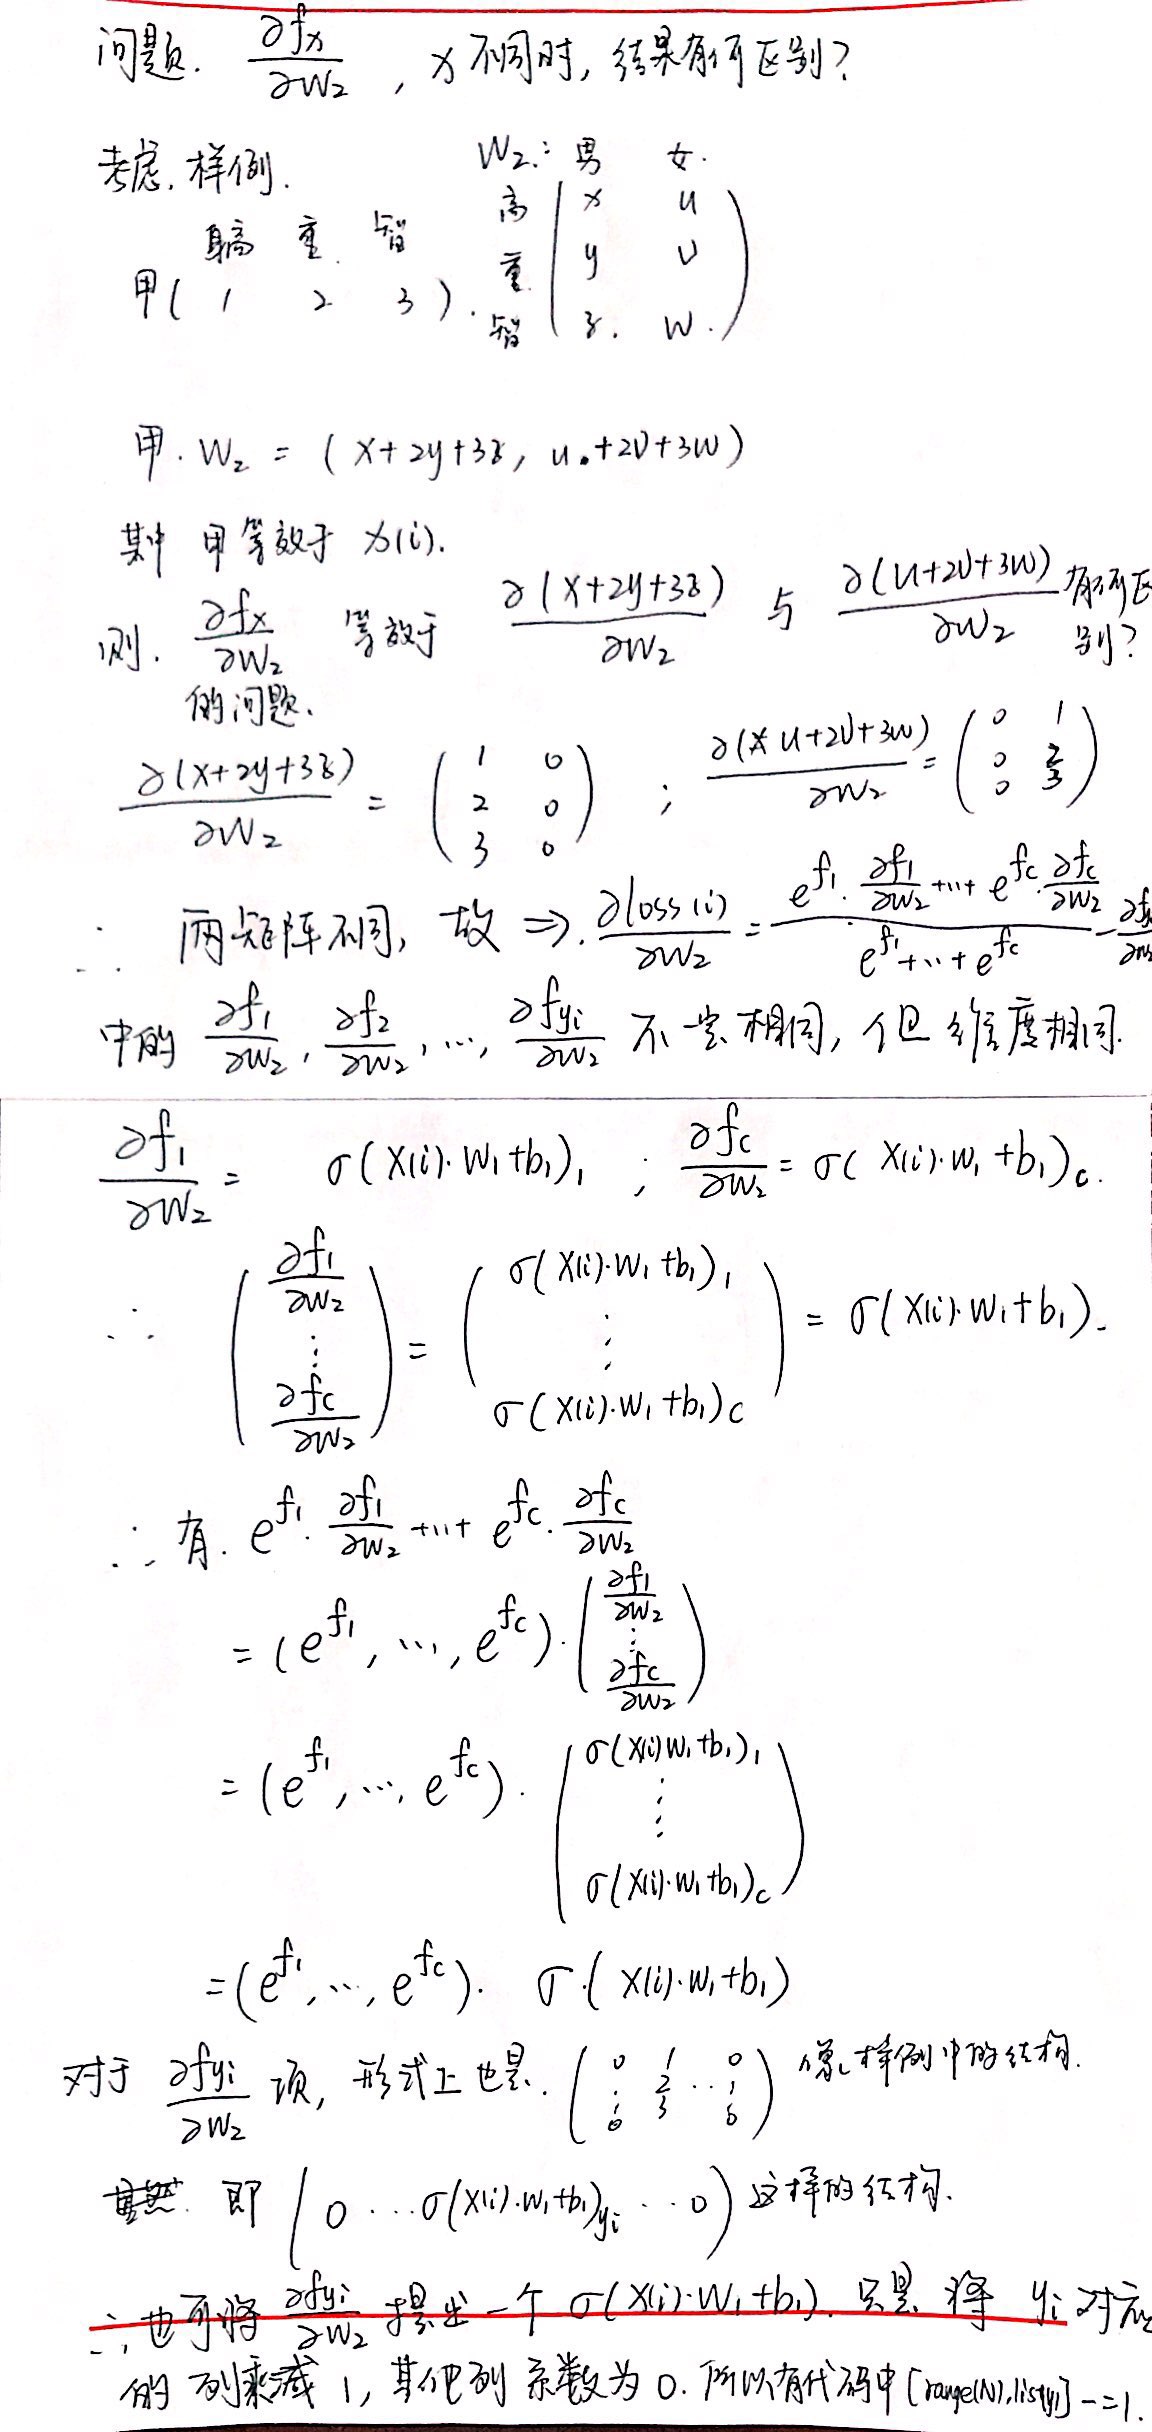 问题. ∂fx/∂W₂ , x 不同时, 结果有何区别?
考虑. 样例.
W₂: 男 女.
身高 重. 智
甲( 1 2 3 ).
高 ( x u
重 y v
智 z. w. )
甲. W₂ = ( x+2y+3z, u+2v+3w )
其中 甲等效于 x(i).
则. ∂fx/∂W₂ 等效于 ∂(x+2y+3z)/∂W₂ 与 ∂(u+2v+3w)/∂W₂ 有何区别?
的问题.
∂(x+2y+3z)/∂W₂ = ( 1 0 ; 2 0 ; 3 0 ) ; ∂(u+2v+3w)/∂W₂ = ( 0 1 ; 0 2 ; 0 3 )
∴ 两矩阵不同, 故 ⇒. ∂loss(i)/∂W₂ = (e^f₁·∂f₁/∂W₂ +…+ e^fc·∂fc/∂W₂)/(e^f₁+…+e^fc) -
中的 ∂f₁/∂W₂, ∂f₂/∂W₂, …, ∂fyi/∂W₂ 不尝相同, 但维度相同.
∂f₁/∂W₂ = σ(X(i)·W₁+b₁)₁ ; ∂fc/∂W₂ = σ( X(i)·W₁+b₁)c.
∴ ( ∂f₁/∂W₂ ⋮ ∂fc/∂W₂ ) = ( σ(X(i)·W₁+b₁)₁ ⋮ σ(X(i)·W₁+b₁)c ) = σ(X(i)·W₁+b₁).
∴ 有. e^f₁·∂f₁/∂W₂ +…+ e^fc·∂fc/∂W₂
= (e^f₁, …, e^fc)·( ∂f₁/∂W₂ ⋮ ∂fc/∂W₂ )
= (e^f₁, …, e^fc)·( σ(X(i)W₁+b₁)₁ ⋮ σ(X(i)·W₁+b₁)c )
= (e^f₁, …, e^fc)· σ·( X(i)·W₁+b₁)
对于 ∂fyi/∂W₂ 项, 形式上也是. ( 0 1 0 ; ⋮ 2 ‥ ⋮ ; 0 3 0 ) 像样例中的结构.
即 ( 0 … σ(X(i)·W₁+b₁)yi … 0 ) 这样的结构.
∴ 也可将 ∂fyi/∂W₂ 提出一个 σ(X(i)·W₁+b₁). 只是 将 yi 对应
的 列乘减 1, 其他列系数为 0. 所以有代码中 [range(N), list(y)] -= 1.